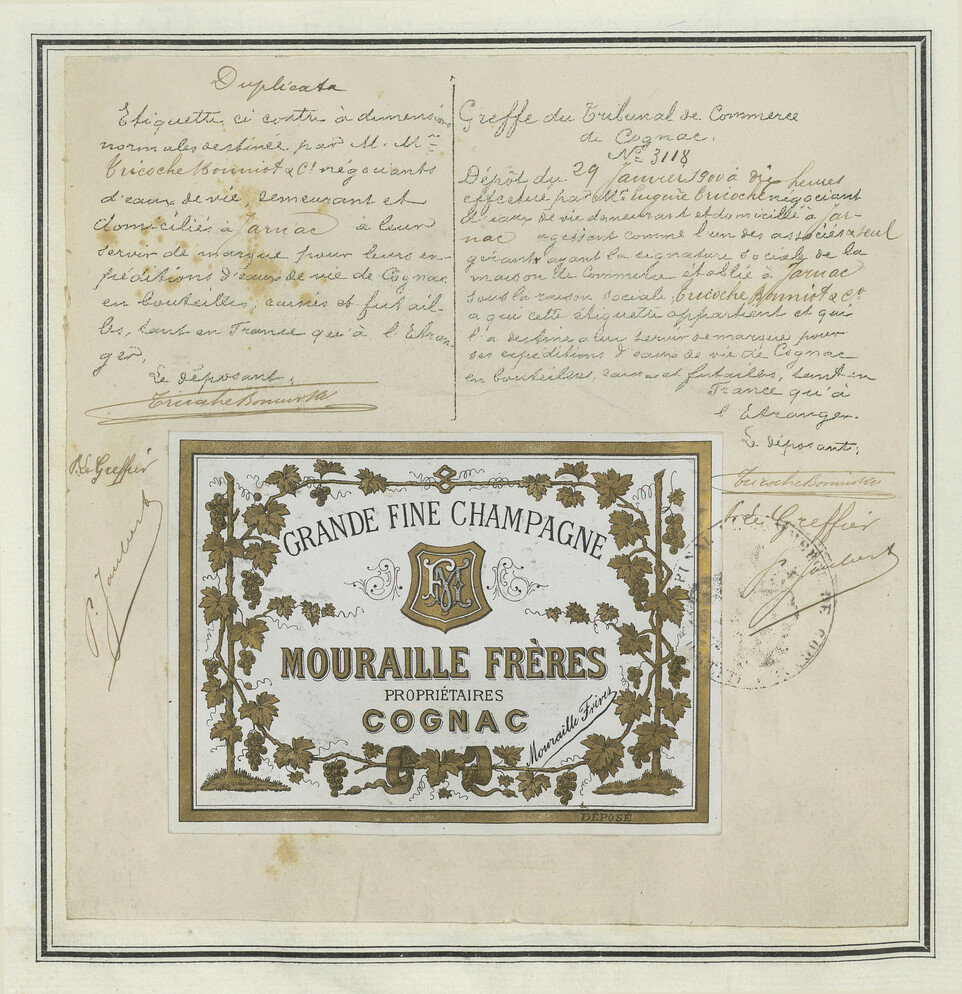 Duplicata
Etiquette ci contre à dimensions
normales destinée par M. Mrs
Tricoche Bonniot & Ce négociants
d'eaux de vie, demeurant et
domiciliés à Jarnac à leur
servir de marque pour leurs ex-
péditions d'eaux de vie de Cognac
en bouteilles, caisses et futail-
les, tant en France qu'à l'Etran-
ger.
Le déposant,
Tricoche Bonniot & Ce
P. Le Greffier
P. Joubert
Greffe du Tribunal de Commerce
de Cognac.
No 3118
Dépôt du 29 Janvier 1900 à dix heures
effectué par Mr Eugène Tricoche négociant
d'eaux de vie demeurant et domicilié à Jar-
nac agissant comme l'un des associés & seul
gérant ayant la signature sociale de la
maison de Commerce établie à Jarnac
sous la raison sociale Tricoche Bonniot & Ce
a qui cette étiquette appartient et qui
l'a destiné a lui servir de marque pour
ses expéditions d'eaux de vie de Cognac
en bouteilles, caisses et futailles, tant en
France qu'à
l'Etranger.
Le déposant,
Tricoche Bonniot & Ce
P. Le Greffier
P. Joubert
GRANDE FINE CHAMPAGNE
MOURAILLE FRÈRES
PROPRIÉTAIRES
COGNAC
Mouraille Frères
DÉPOSÉ